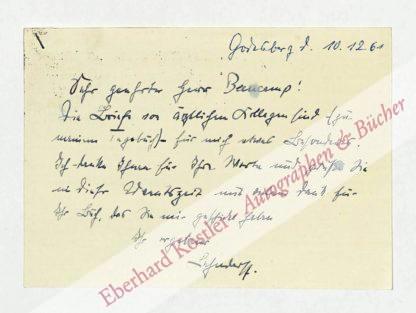 Godesberg d. 10.12.61
Sehr geehrter Herr Beaucamp!
Die Briefe von ärztlichen Kollegen sind (zu
meinem Tagebuch) für mich etwas Besonderes.
Ich danke Ihnen für Ihre Worte und grüße Sie
in dieser Adventszeit mit Dank für
Ihr Buch, das Sie mir geschickt haben
Ihr ergebener
Lehndorff.
Eberhard Köstler - Autographen & Bücher